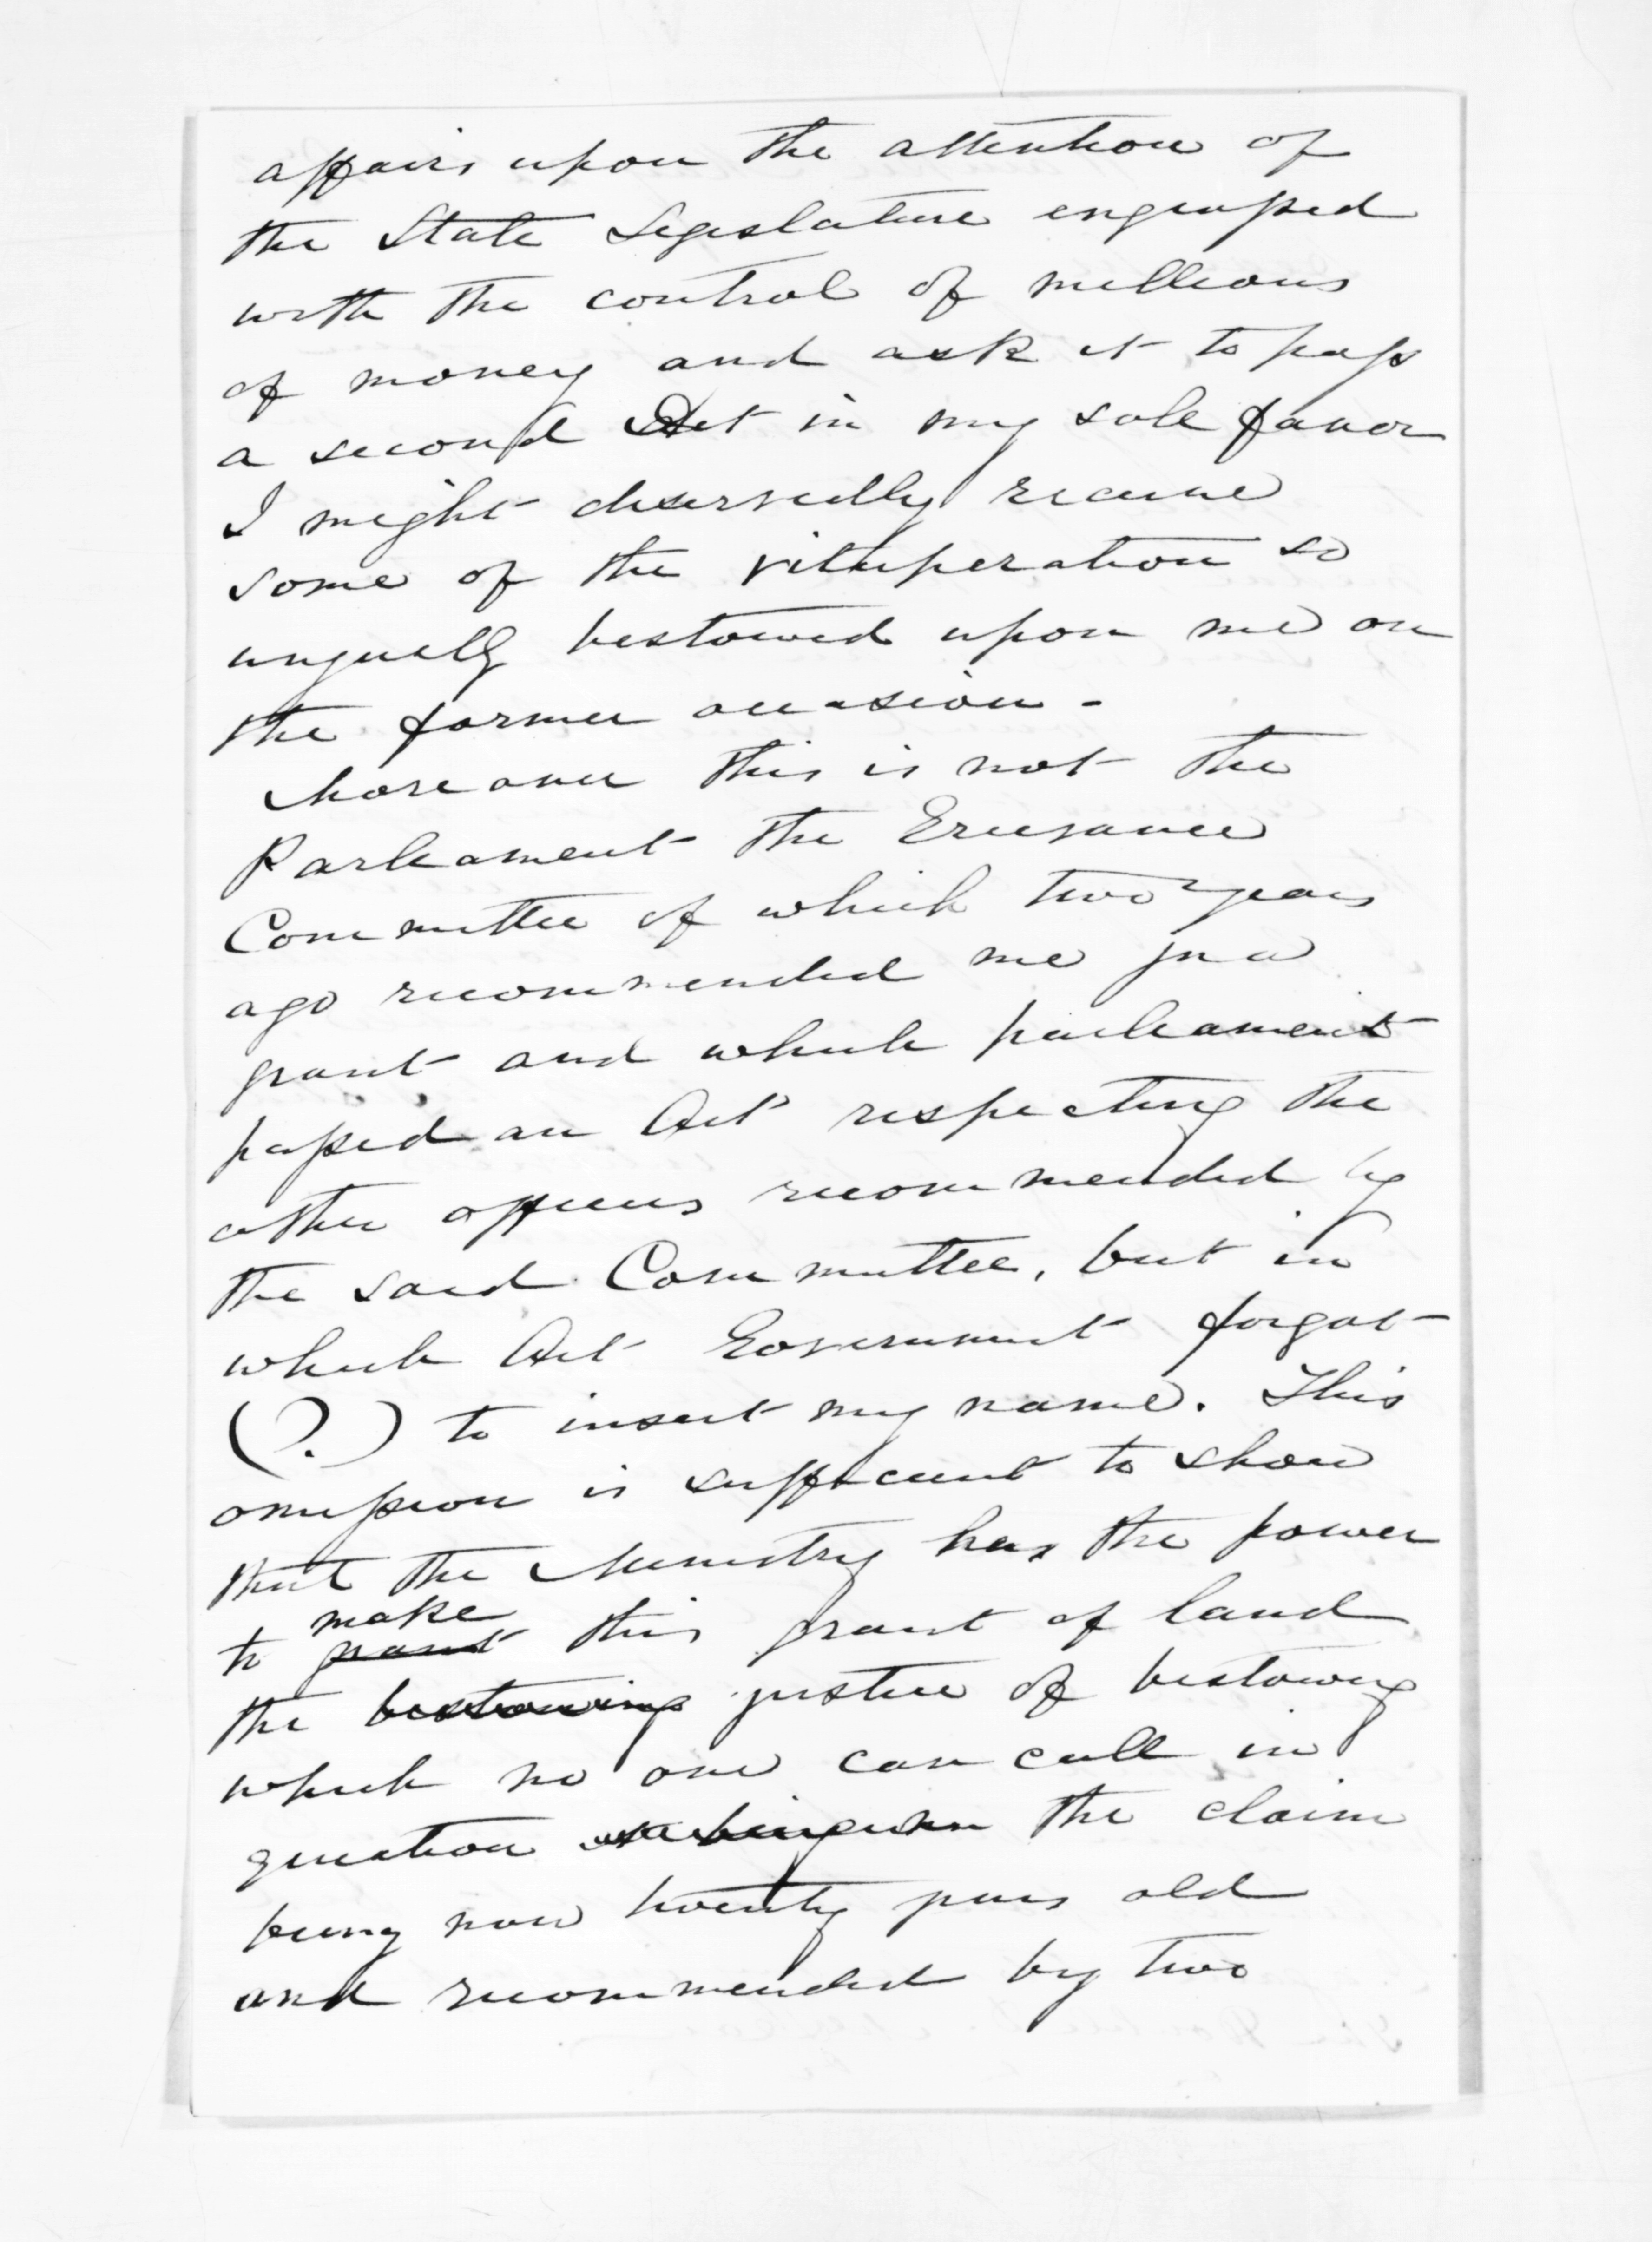 affairs upon the attention of
the State Legislature engrossed
with the control of millions
of money and ask it to pass
a second Act in my sole favor
I might deservedly receive
some of the vituperation so
unjustly bestowed upon me on
the former occasion -
Moreover this is not the
Parliament the Grievance
Committee of which two years
ago recommended me for a
grant and which parliament
passed an Act respecting the
other officers recommended by
the said Committee, but in
which Act Government forgot
(?) to insert my name. This
omission is sufficient to show
that the Ministry has the power
make
to grant this grant of land
the bestowing justice of bestowing
which no one can call in
question the claim
being now twenty years old
and recommended by two